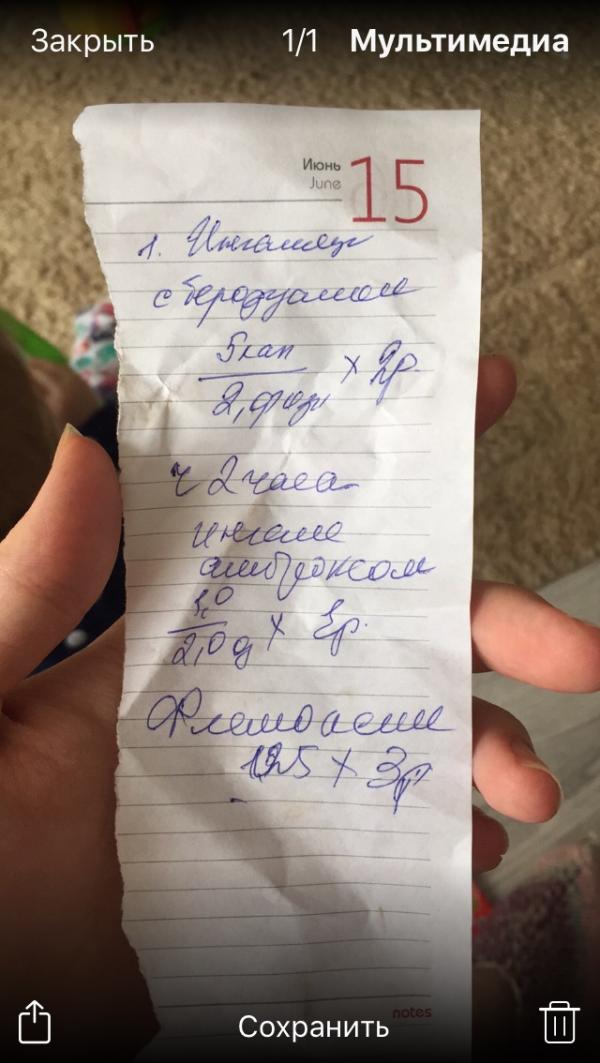 Закрыть 1/1 Мультимедиа
Июнь
June 15
1. Ингаляци
с беродуалом
5 кап
2, физр × 2р
ч 2 часа
ингаля
амброксом
1,0
2,0 ф ×
Флемоксин
125 × 3р
notes
Сохранить